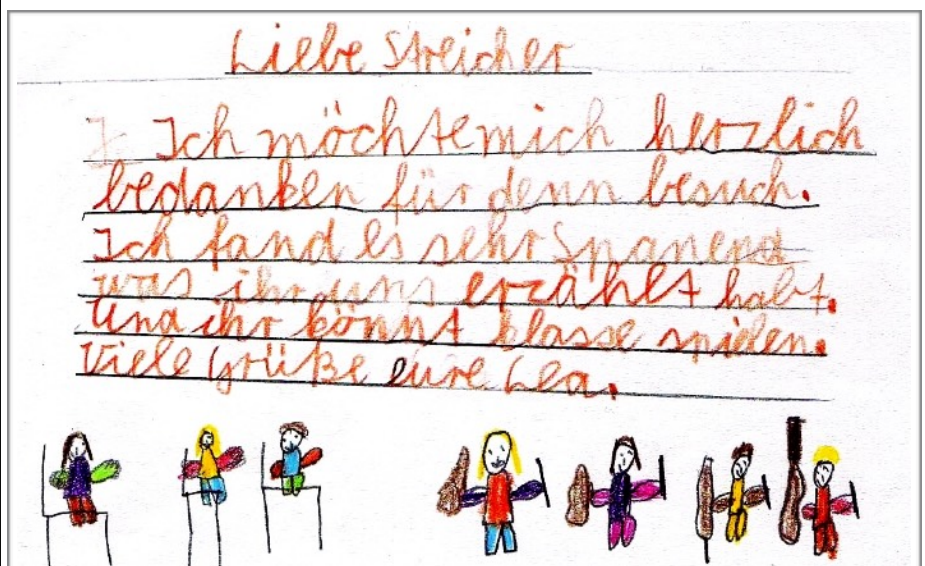 Liebe Streicher
Ich möchte mich herzlich
bedanken für denn besuch.
Ich fand es sehr Spanend
was ihr uns erzählt habt.
Und ihr könnt klasse spielen.
Viele Grüße eure Lea.